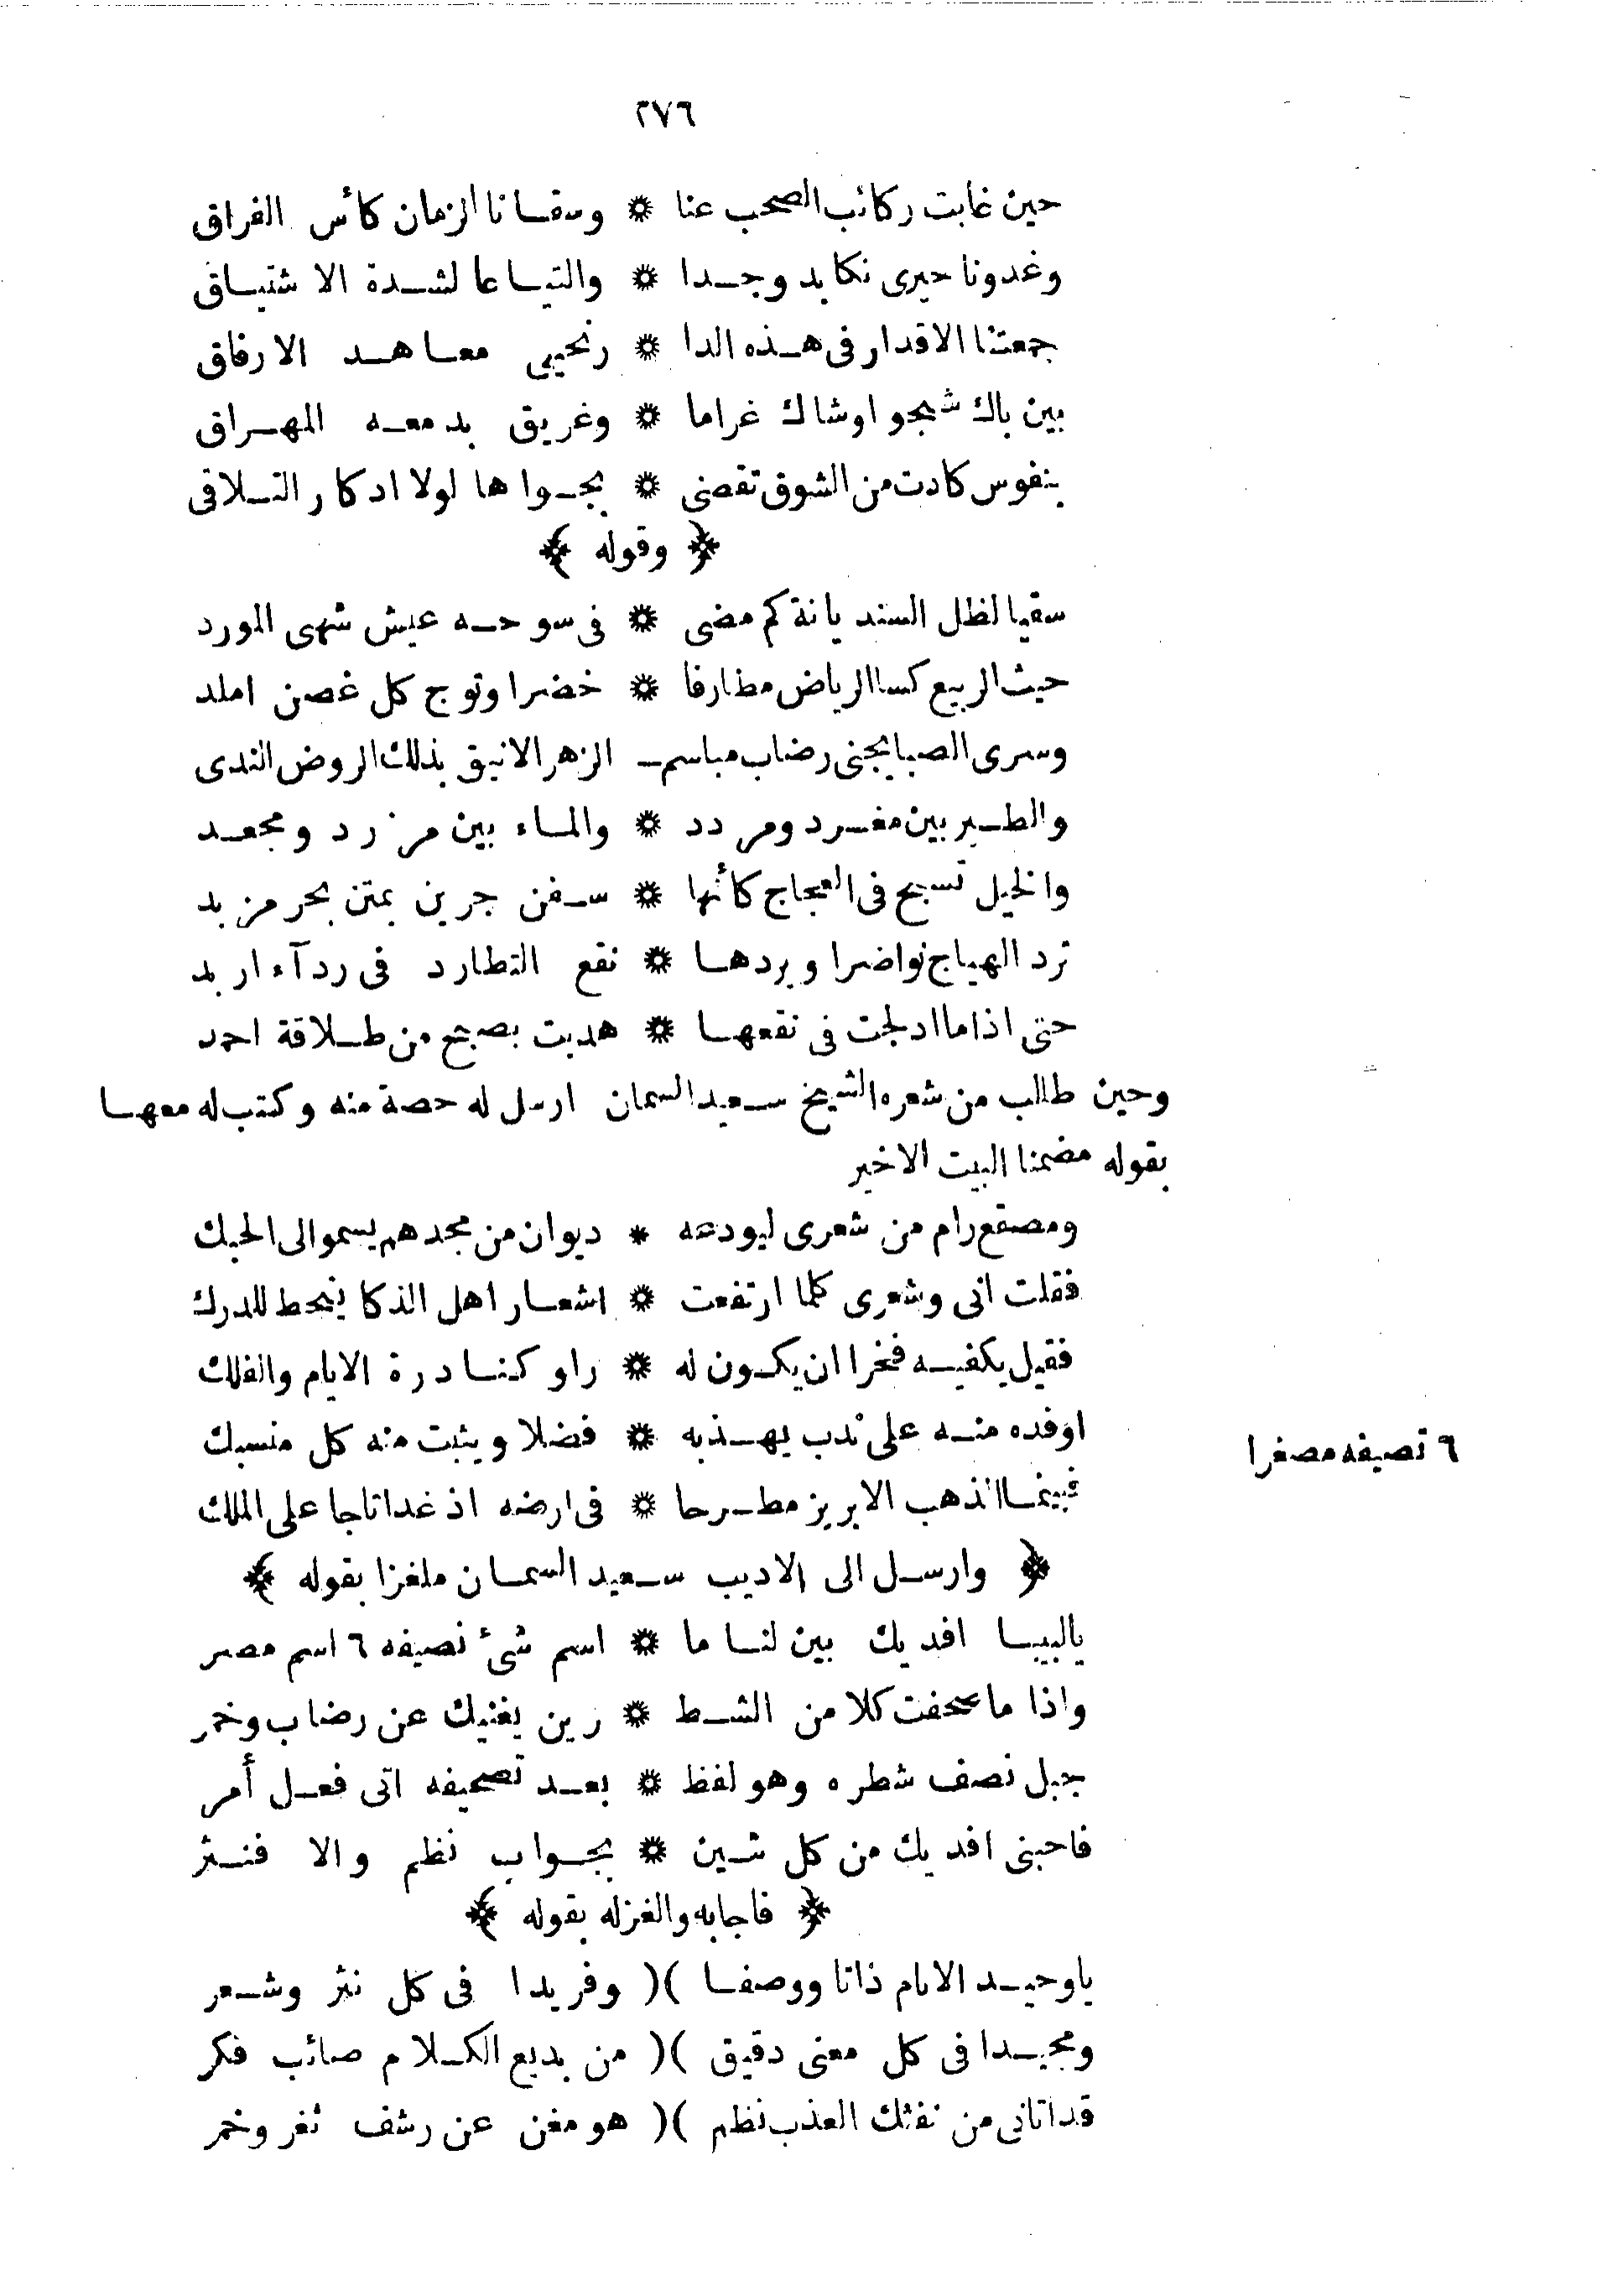 ٢٧٦
حين غابت ركائب الصحب عنا * وسقانا الزمان كأس الفراق
وغدونا حيرى نكابد وجدا * والتياعا لشدة الاشتياق
جمعتنا الاقدار فى هذه الدا * رنحيى معاهد الارفاق
بين باك شجوا وشاك غراما * وغريق بدمعه المهراق
بنفوس كادت من الشوق تقضى * بجواها لولا ادكار التلاقى
﴿ وقوله ﴾
سقيا لظل السنديانة كم مضى * فى سوحه عيش شهى المورد
حيث الربيع كسا الرياض مطارفا * خضرا وتوج كل غصن املد
وسرى الصبا يجنى رضاب مباسم الزهر الانيق بذلك الروض الندى
والطير بين مغرد ومردد * والماء بين مزرد ومجعد
والخيل تسبح فى العجاج كأنها * سفن جرين بمتن بحر مزبد
ترد الهياج نواضرا ويردها * نقع التطارد فى ردآء اربد
حتى اذا ما ادلجت فى نقعها * هديت بصبح من طلاقة احمد
وحين طلب من شعره الشيخ سعيد السمان ارسل له حصة منه وكتب له معها
بقوله مضمنا البيت الاخير
ومصقع رام من شعرى ليودعه * ديوان من مجدهم يسمو الى الحبك
فقلت انى وشعرى كلما ارتفعت * اشعار اهل الذكا ينحط للدرك
فقيل يكفيه فخرا ان يكون له * راو كنا درة الايام والفلك
اوفده منه على ندب يهذبه * فضلا ويثبت منه كل منسبك
فبينما الذهب الابريز مطرحا * فى ارضه اذ غدا تاجا على الملك
﴿ وارسل الى الاديب سعيد السمان ملغزا بقوله ﴾
يالبيبا افديك بين لنا ما * اسم شئ نصيفه ٦ اسم مصر
واذا ما صحفت كلا من الشط * رين يغنيك عن رضاب وخمر
جبل نصف شطره وهو لفظ * بعد تصحيفه اتى فعل أمر
فاحبنى افديك من كل شين * بجواب نظم والا فنثر
﴿ فاجابه والغزله بقوله ﴾
ياوحيد الانام ذاتا ووصفا )( وفريدا فى كل نثر وشعر
ومجيدا فى كل معنى دقيق )( من بديع الكلام صائب فكر
قد اتانى من نفثك العذب نظم )( هو مغن عن رشف ثغر وخمر
٦ تصيفه مصغرا